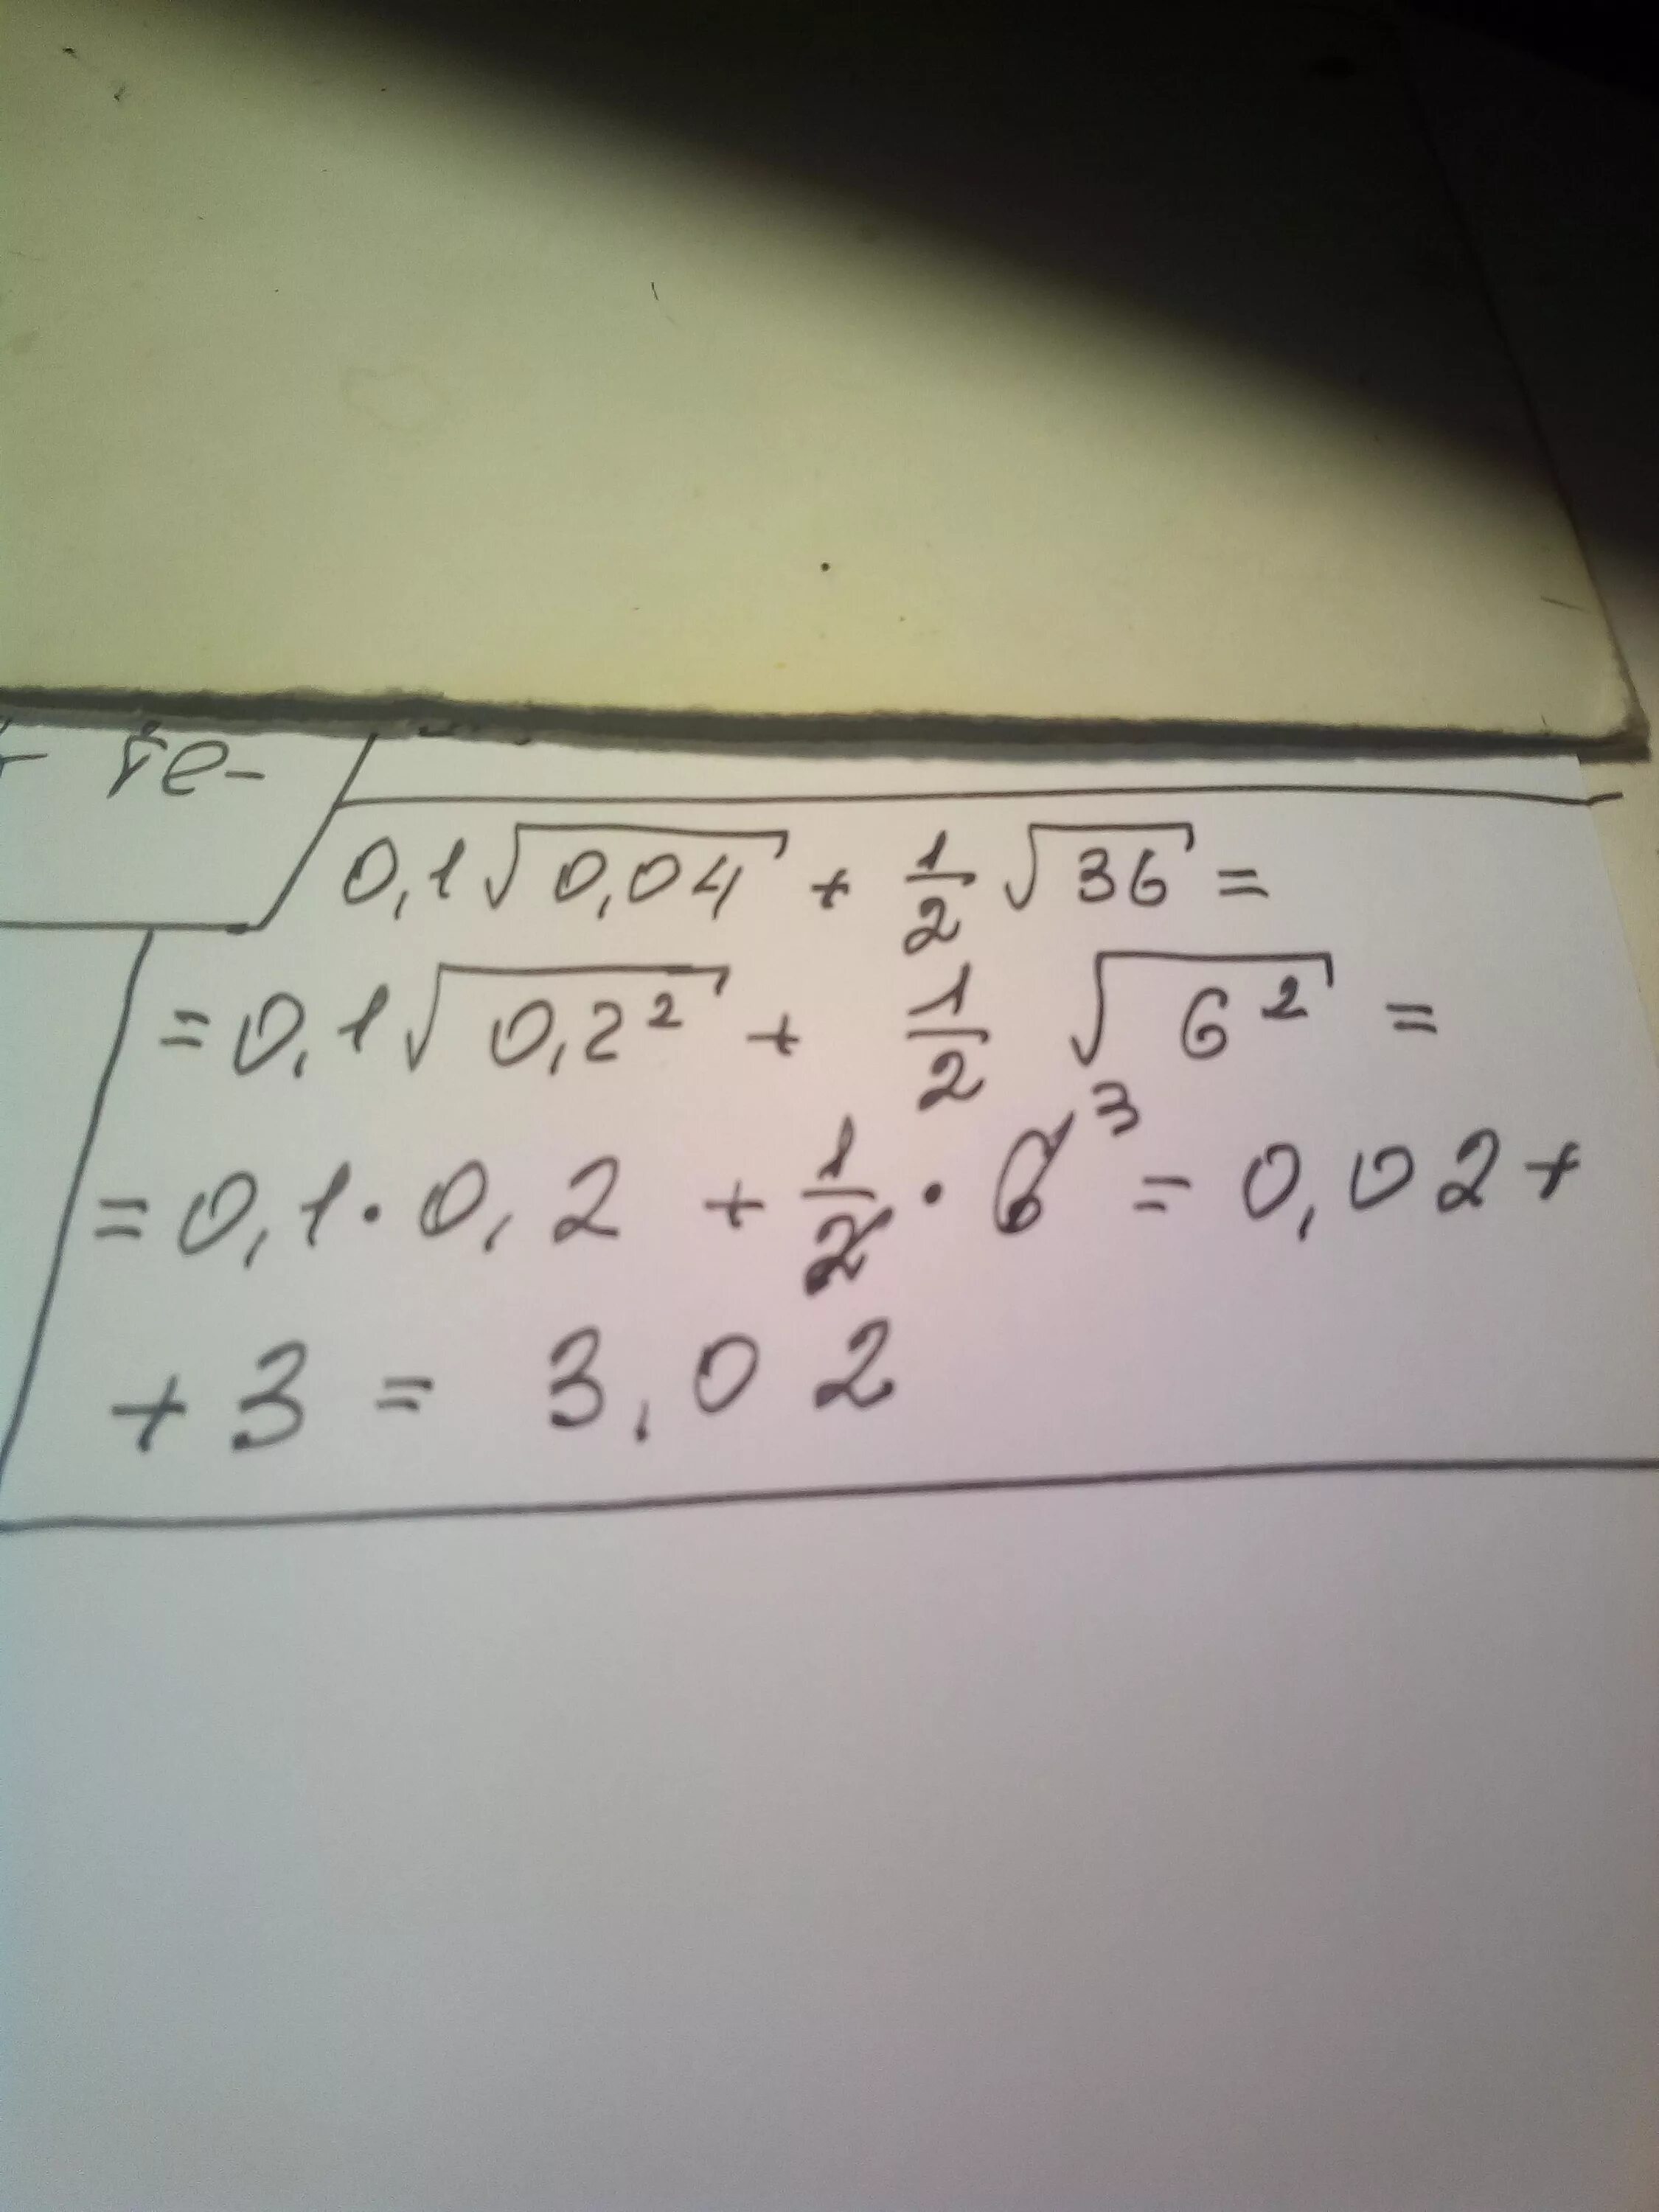 0,1√0,04 + 1/2 √36 =
= 0,1√0,2² + 1/2 √6² =
= 0,1 · 0,2 + 1/2 · 6 ³ = 0,02 +
+ 3 = 3,02